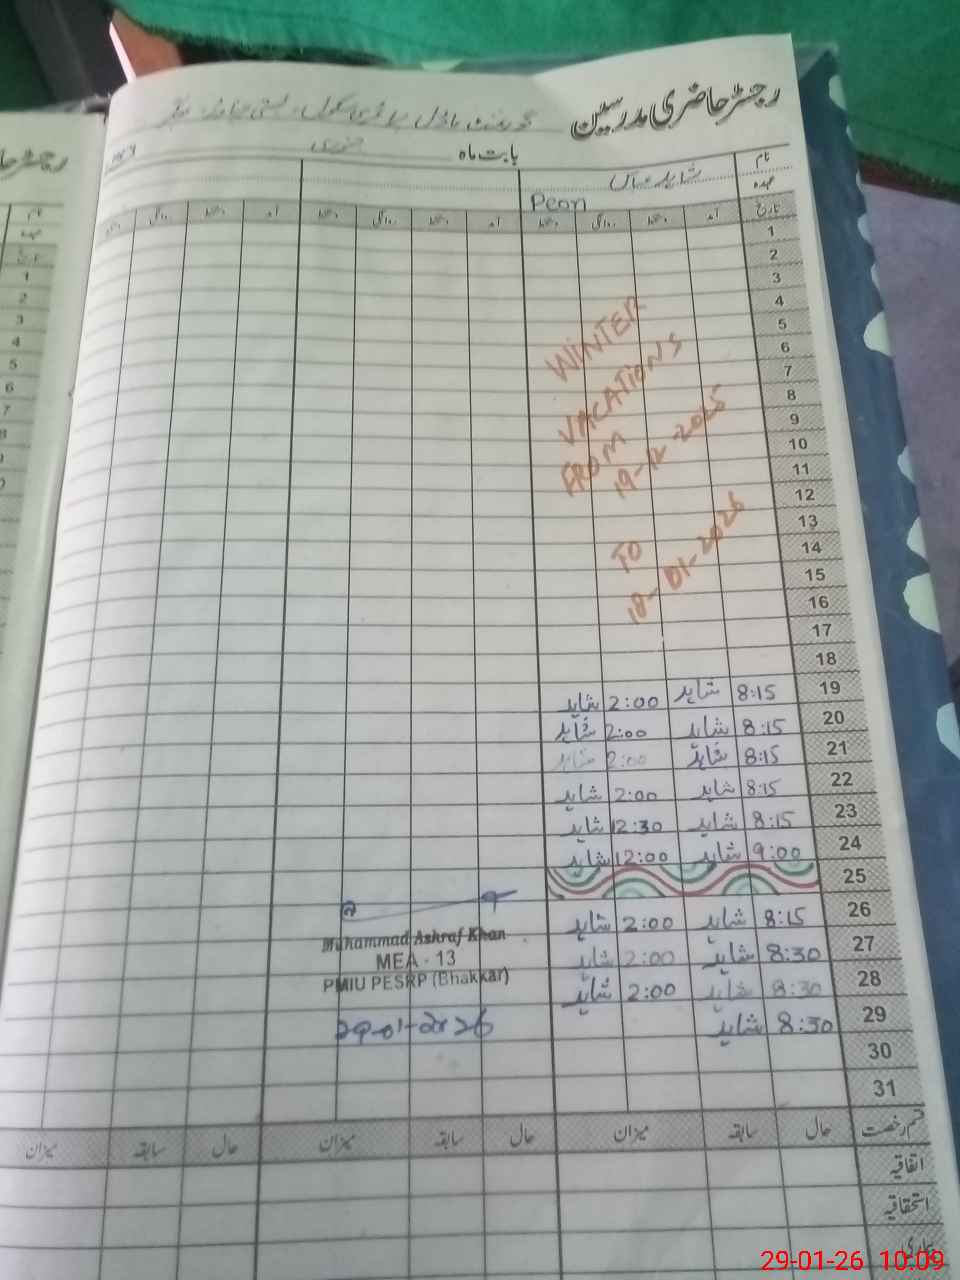 رجسٹر حاضری مدرسین
بابت ماہ جنوری
نام
عہدہ Peon
تاریخ آمد دستخط روانگی دستخط آمد دستخط روانگی دستخط آمد دستخط روانگی
1
2
3
4
5
6
7
8
9
10
11
12
13
14
15
16
17
18
WINTER
VACATIONS
FROM
19-12-2025
TO
18-01-2026
19 8:15 شاہد 2:00 شاہد
20 8:15 شاہد 2:00 شاہد
21 8:15 شاہد 2:00 شاہد
22 8:15 شاہد 2:00 شاہد
23 8:15 شاہد 12:30 شاہد
24 9:00 شاہد 12:00 شاہد
25
26 8:15 شاہد 2:00 شاہد
27 8:30 شاہد 2:00 شاہد
28 8:30 شاہد 2:00 شاہد
29 8:30 شاہد
30
31
Muhammad Ashraf Khan
MEA - 13
PMIU PESRP (Bhakkar)
29-01-2026
قسم رخصت حال سابقہ میزان حال سابقہ میزان حال سابقہ میزان
اتفاقیہ
استحقاقیہ
بیماری
رجسٹر حا
نام
عہدہ
تاریخ
1
2
3
4
5
6
7
8
29-01-26 10:09